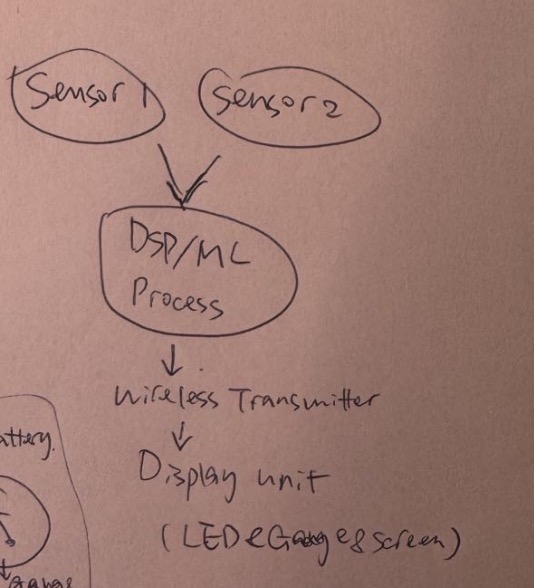 Sensor 1
Sensor 2
DSP/ML
Process
Wireless Transmitter
Display unit
(LED & Gauge & screen)
attery.